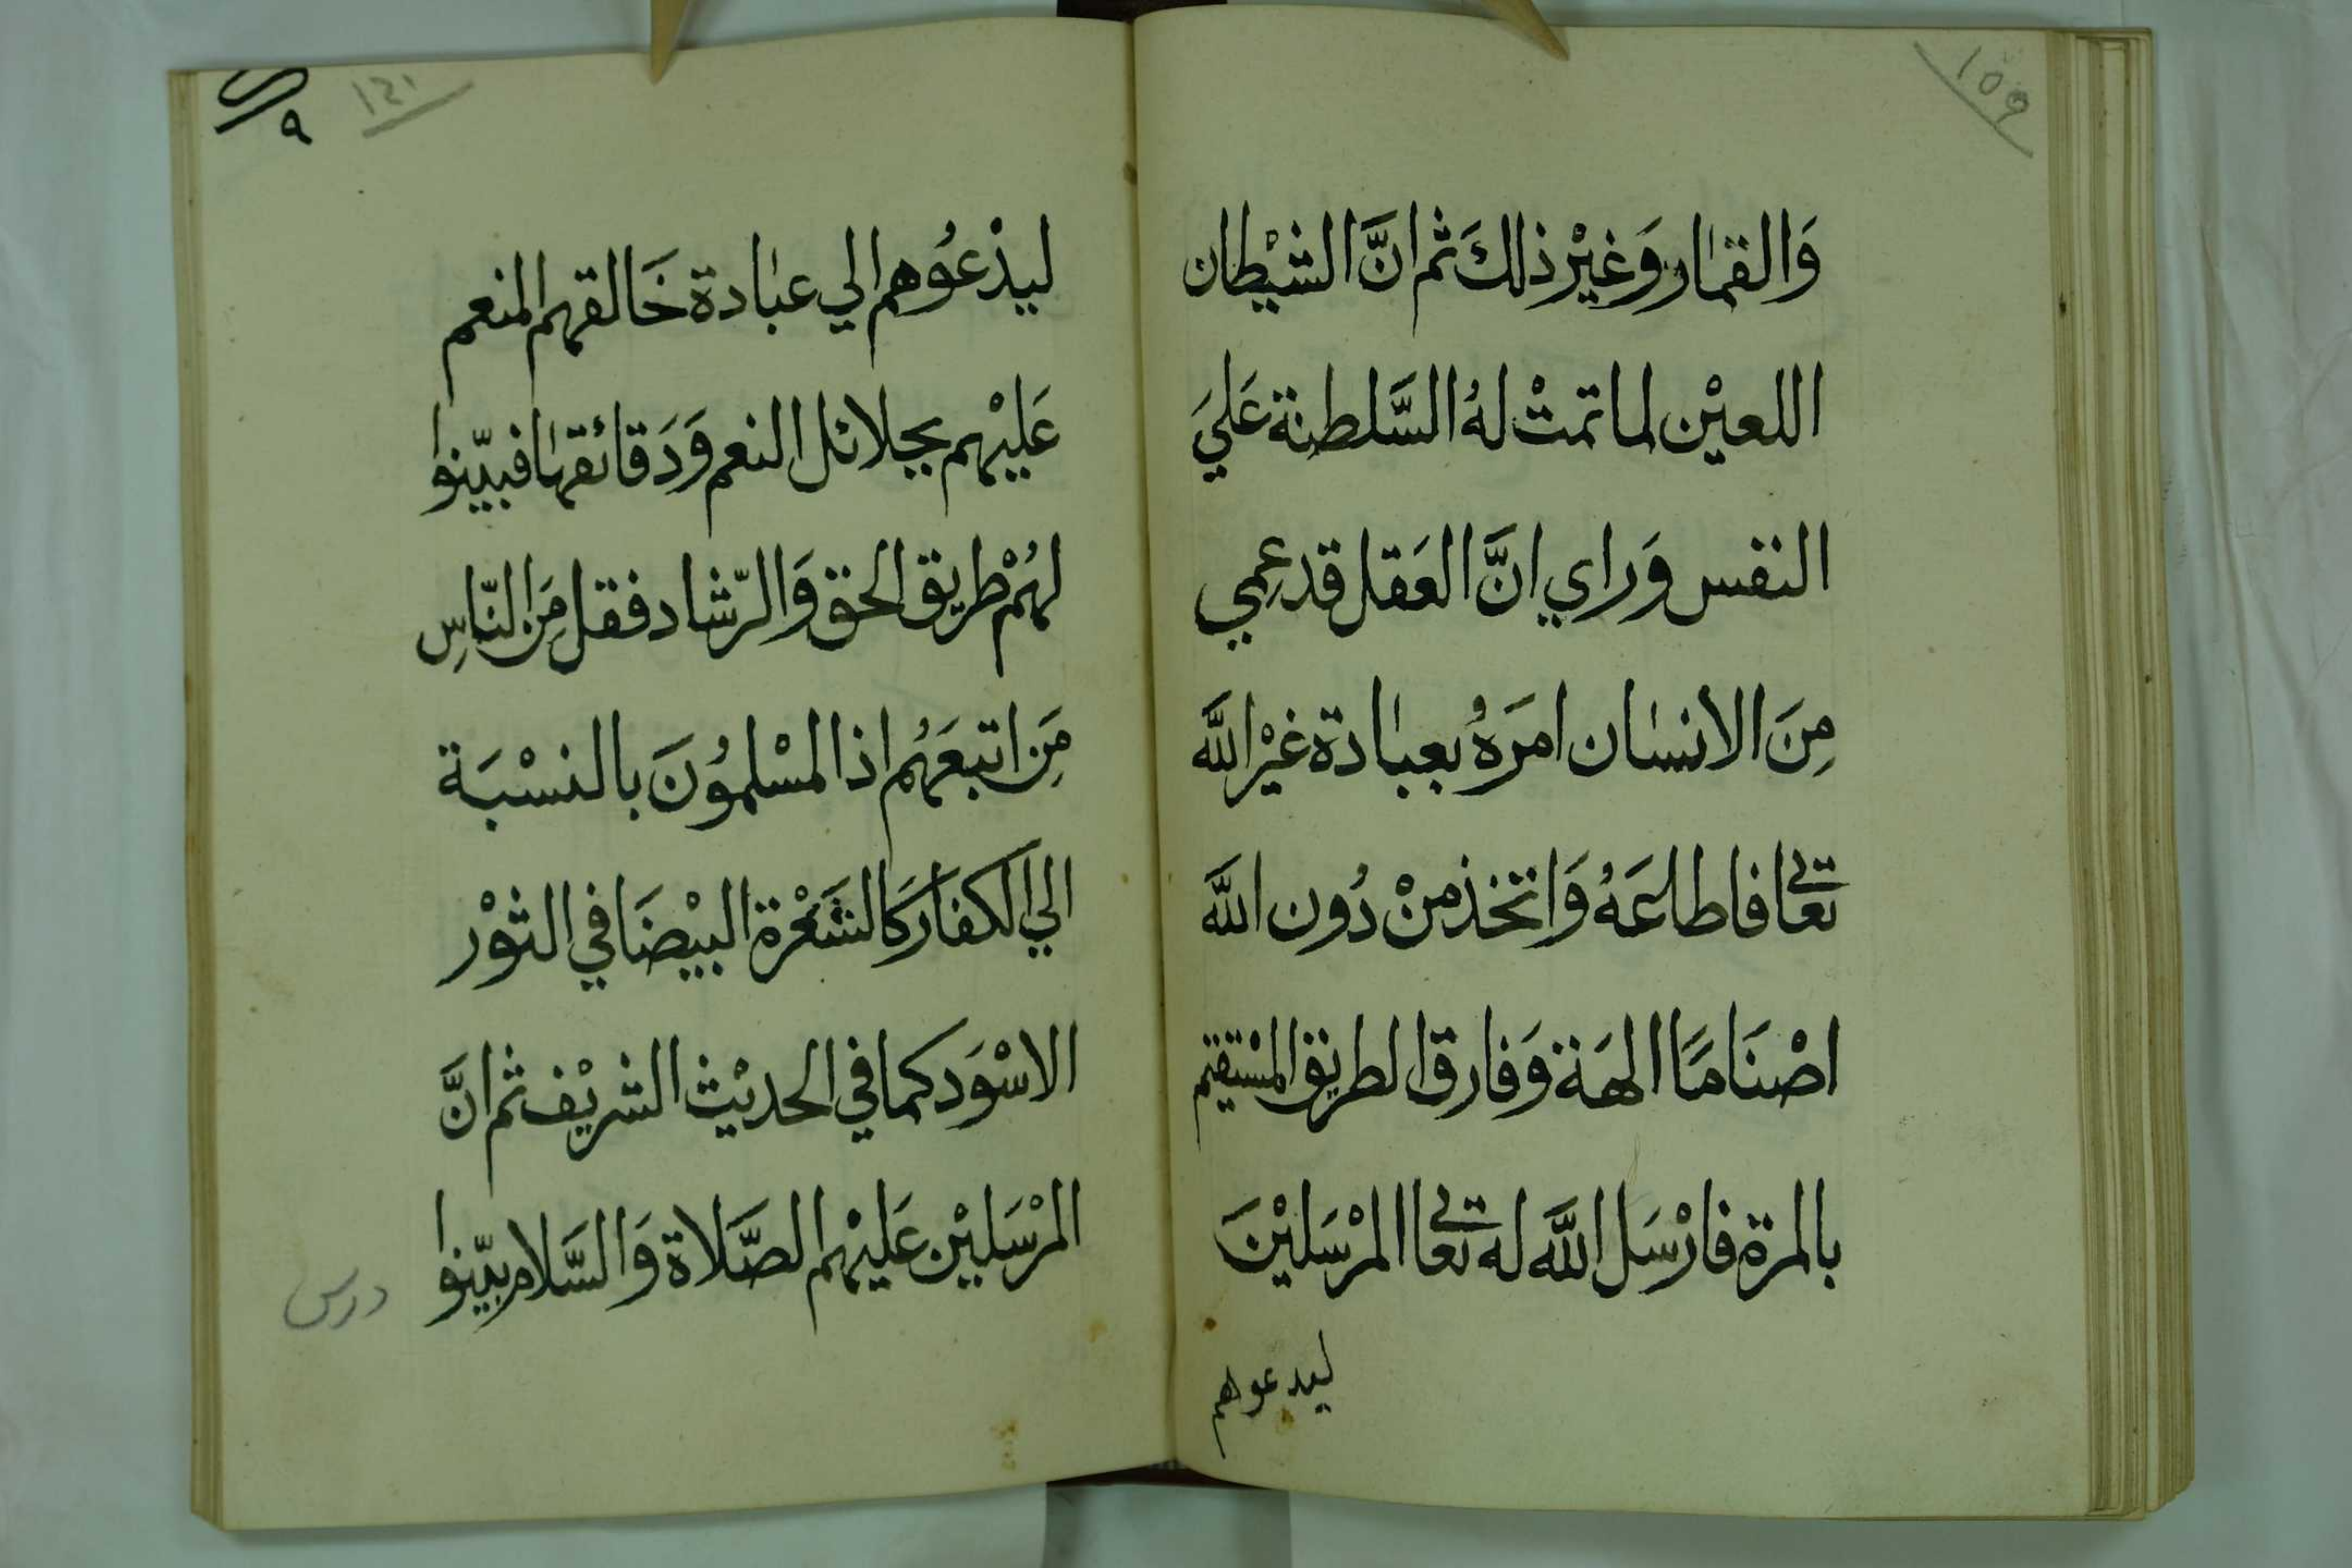 109
وَالقمَار وَغيْر ذلكَ ثم انَّ الشيْطان
اللعيْن لما تمتْ لهُ السَّلطنة عَليَ
النفس وَراي انَّ العَقل قد عمِي
مِنَ الانسَان امَرَهُ بعبَادة غيْر اللَّه
تعالى فاطاعَهُ وَاتخذ منْ دُون اللَّه
اصْنَامًا الهَة وَفارق الطريق المسْتقيم
بالمرة فارْسَل اللَّه له تعالى المرْسَليْنَ
ليدعوهم
١٢١
٩
ليدْعُوهم الي عبَادة خَالقهم المنعم
عَليْهم بجلائل النعم وَدَقائقهَا فبيّنوا
لهُمْ طريق الحق وَالرّشاد فقل مِنَ النّاسِ
مِنَ اتبعَهُم اذا المسْلمُونَ بالنسْبَة
الي الكفار كَالشَعْرَة البيْضَا في الثوْر
الاسْوَد كما في الحديْث الشريْف ثم انَّ
المرْسَليْن عَليْهم الصَّلاة وَالسَّلام بيّنوا
درس